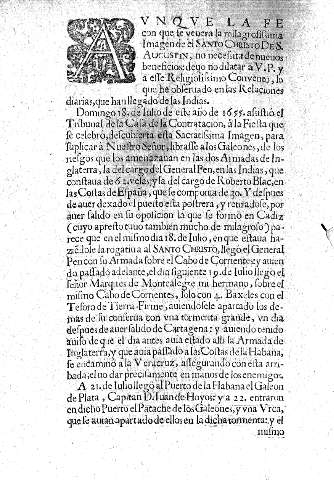 AVNQVE LA FE
con que se venera la milagrosissima
Imagen de el SANTO CHRISTO DE S.
AUGUSTIN, no necessita de nuevos
beneficios: devo no dilatar a V.P. y
a esse Religiosissimo Convento, lo
que he observado en las Relaciones
diarias, que han llegado de las Indias.
Domingo 18. de Iulio de este año de 1655. assistiò el
Tribunal de la Casa de la Contratacion, à la Fiesta que
se celebrò, descubierta esta Sacratissima Imagen, para
suplicar à Nuestro Señor, librasse a los Galeones, de los
riesgos que los amenazavan en las dos Armadas de In-
glaterra, la del cargo del General Pen, en las Indias, que
constava de 62. velas; y la del cargo de Roberto Blac, en
las Costas de España, que se componia de 30. Y despues
de aver dexado el puesto esta postrera, y retiradose, por
aver salido en su oposicion la que se formò en Cadiz
(cuyo apresto tuvo tambien mucho de milagroso) pa-
rece que en el mismo dia 18. de Iulio, en que estava ha-
ziẽdo la rogativa al SANTO CHRISTO, llegò el General
Pen con su Armada sobre el Cabo de Corrientes: y avien
do passado adelante, el dia siguiente 19. de Iulio llegò el
señor Marques de Montealegre mi hermano, sobre el
mismo Cabo de Corrientes, solo con 4. Baxeles con el
Tesoro de Tierra-Firme, aviendosele apartado los de-
mas de su conserva con vna tormenta grande, vn dia
despues de aver salido de Cartagena: y aviendo tenido
aviso de que el dia antes avia estado alli la Armada de
Inglaterra, y que avia passado a las Costas de la Habana,
se encaminò a la Veracruz, assegurando con esta arri-
bada, el no dar precisamente en manos de los enemigos.
A 21. de Iulio llegò al Puerto de la Habana el Galeon
de Plata, Capitan D. Iuan de Hoyos: y a 22. entraron
en dicho Puerto el Patache de los Galeones, y vna Vrca,
que se avian apartado de ellos en la dicha tormenta: y el
mismo